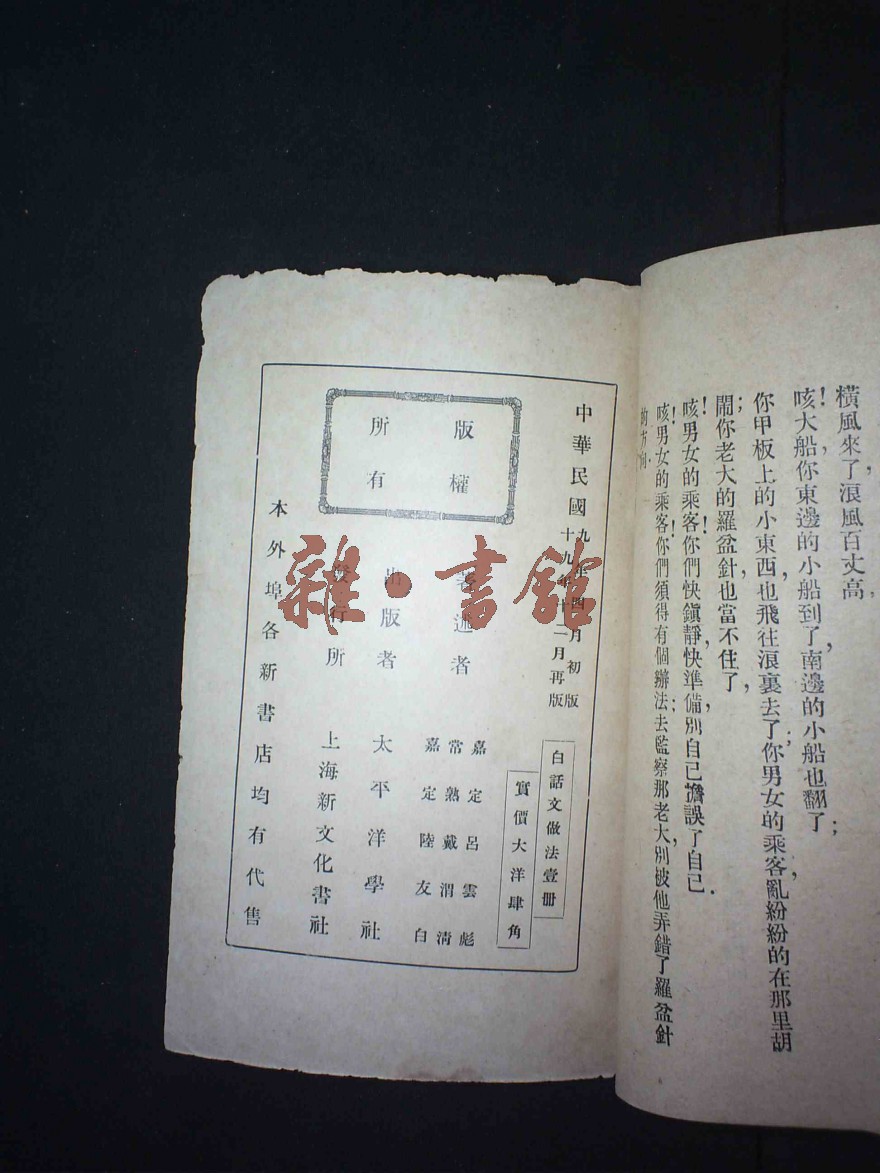 橫風來了，浪風百丈高，
咳！大船，你東邊的小船到了，南邊的小船也翻了；
你甲板上的小東西也飛往浪裏去了；你男女的乘客，亂紛紛的在那里胡
鬧；你老大的羅盆針也當不住了，
咳！男女的乘客！你們快鎮靜，快準備，別自己擔誤了自己．
咳！男女的乘客！你們須得有個辦法；去監察那老大，別被他弄錯了羅盆針
的方向．
中華民國九年四月初版
十九年十二月再版
白話文做法壹册
實價大洋肆角
版權
所有
著述者
嘉定呂雲彪
常熟戴渭清
嘉定陸友白
出版者
太平洋學社
發行所
上海新文化書社
本外埠各新書店均有代售
雜·書館